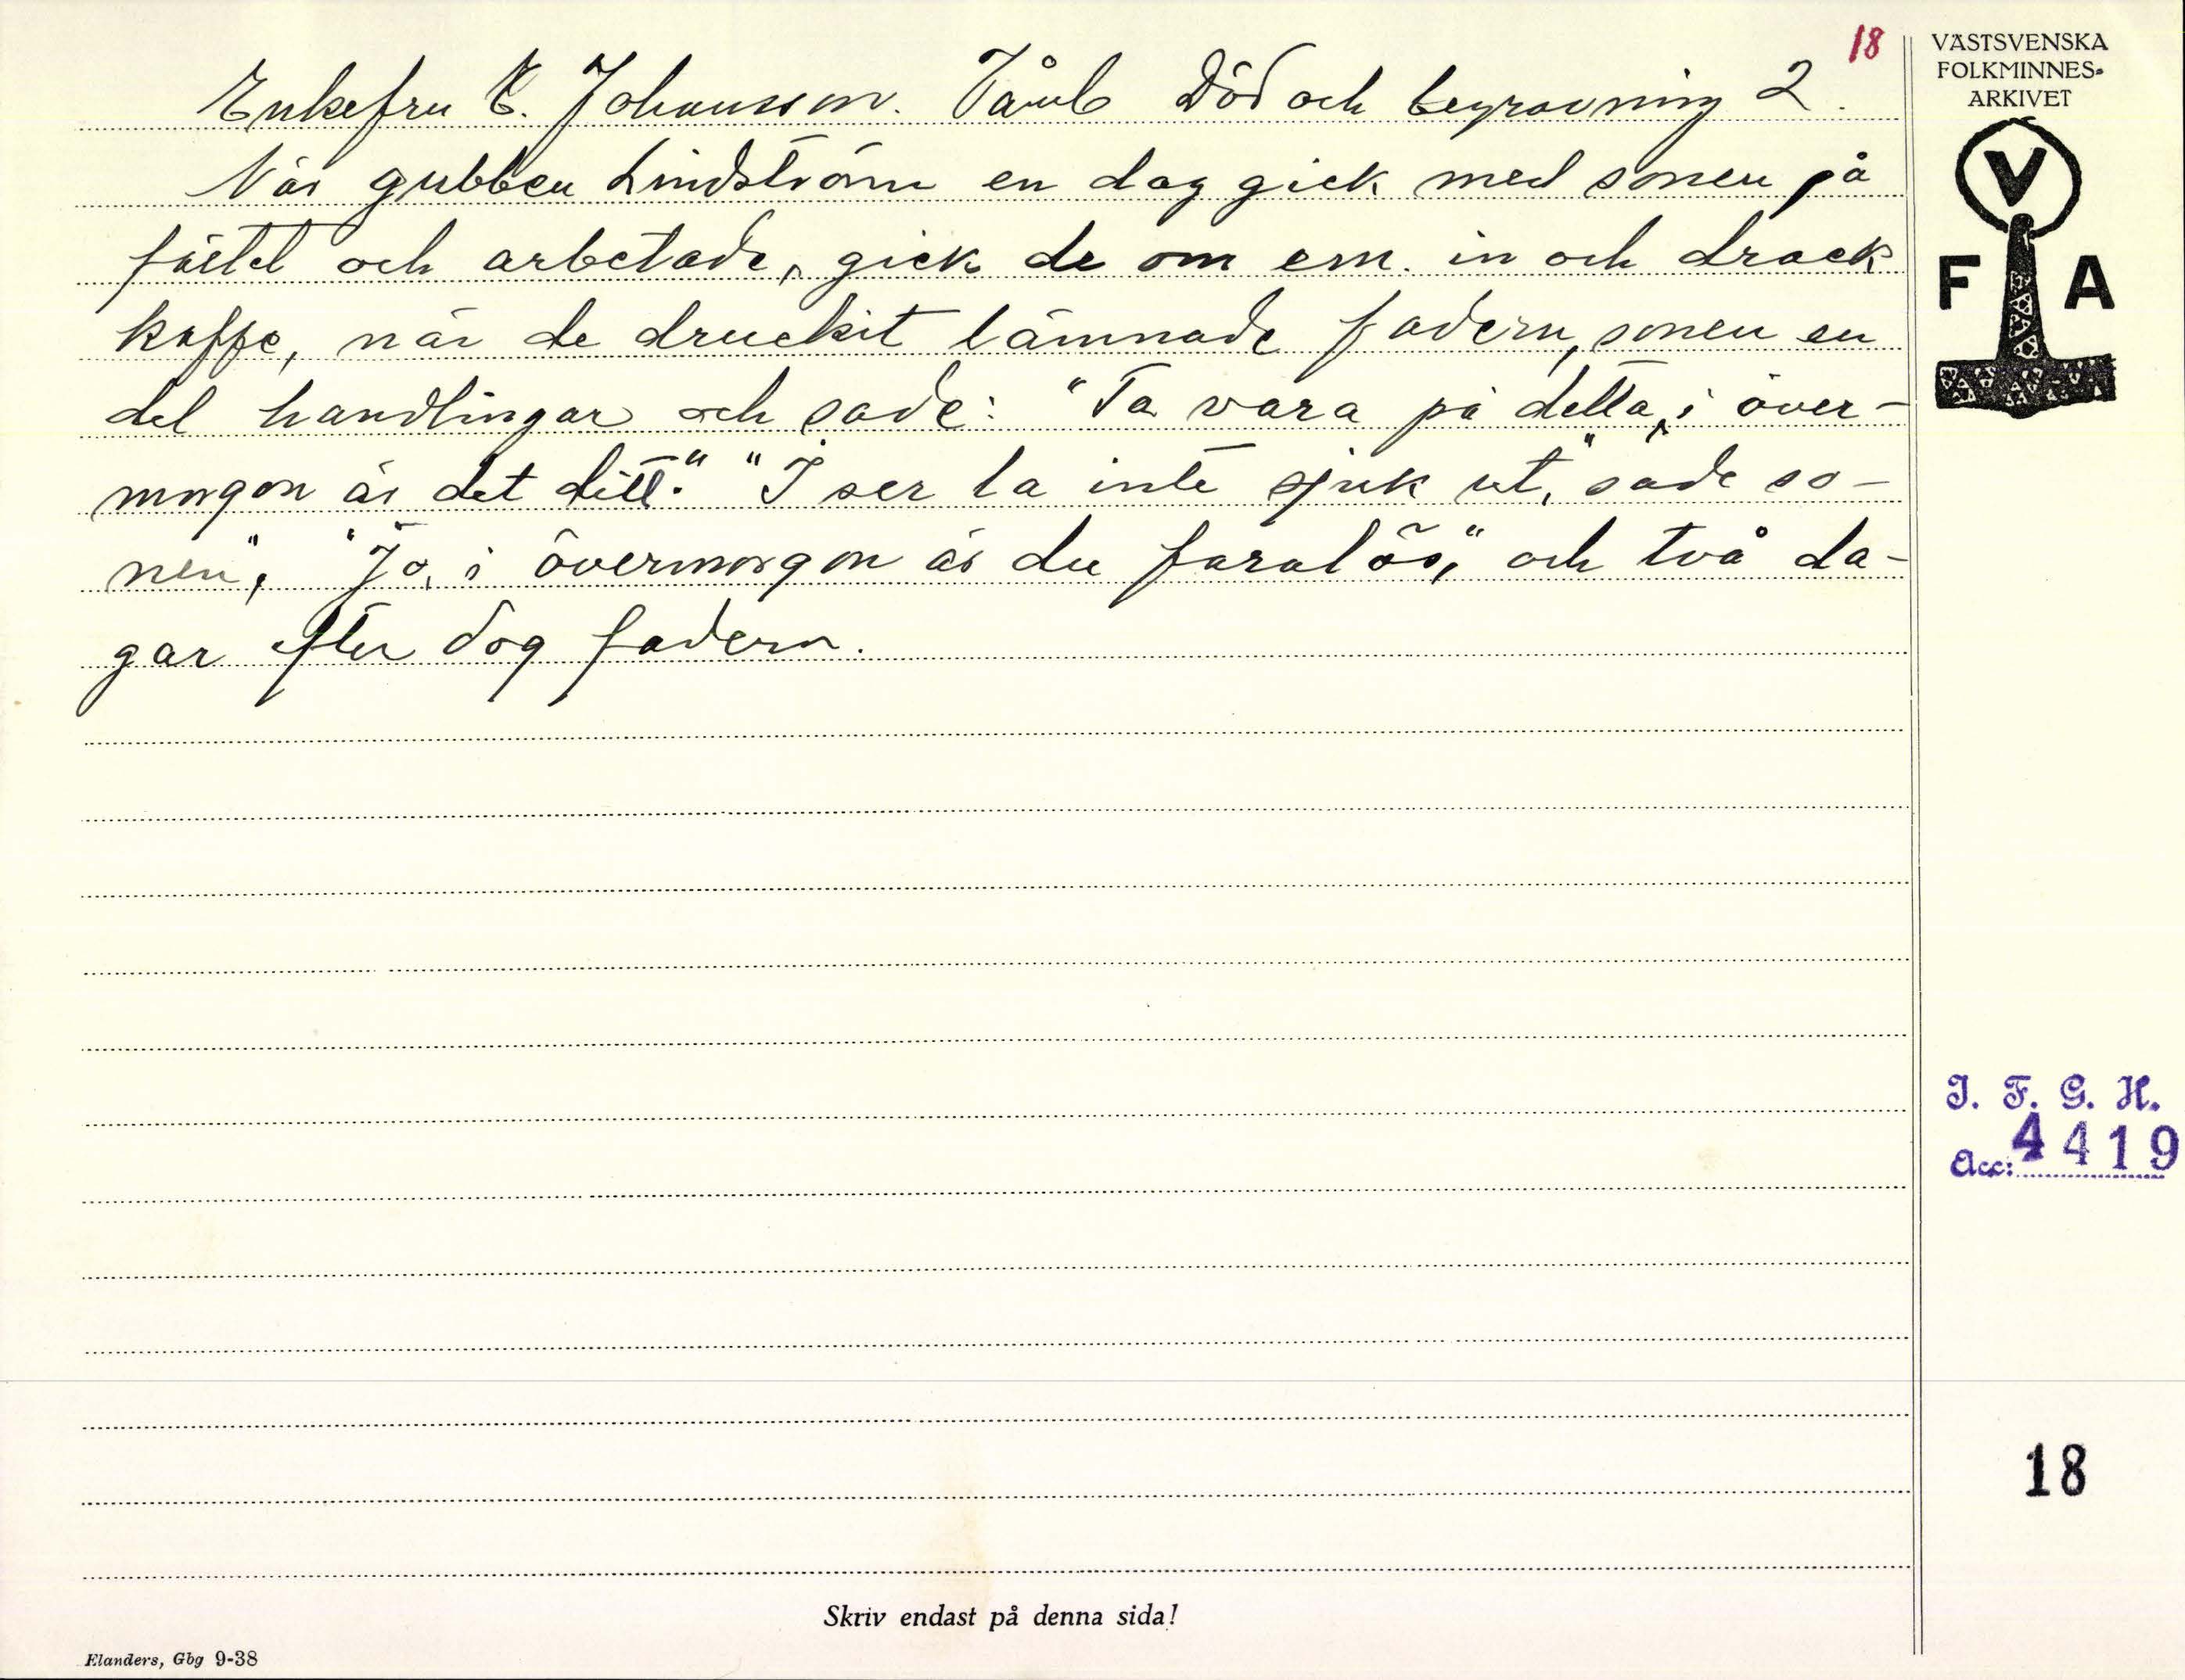 18
Enkefru E. Johansson. Tåmb Död och begravning 2.
När gubben Lindström en dag gick med sonen på
fältet och arbetade, gick de om em. in och drack
kaffe, när de druckit lämnade fadern, sonen en
del handlingar och sade: "Ta vara på detta, i över-
morgon är det ditt." "I ser la inte sjuk ut," sade so-
nen", "Jo, i övermorgon är du faralös," och två da-
gar efter dog fadern.
VÄSTSVENSKA
FOLKMINNES-
ARKIVET
V
F A
I. F. G. H.
Acc: 4419
18
Skriv endast på denna sida!
Elanders, Gbg 9-38